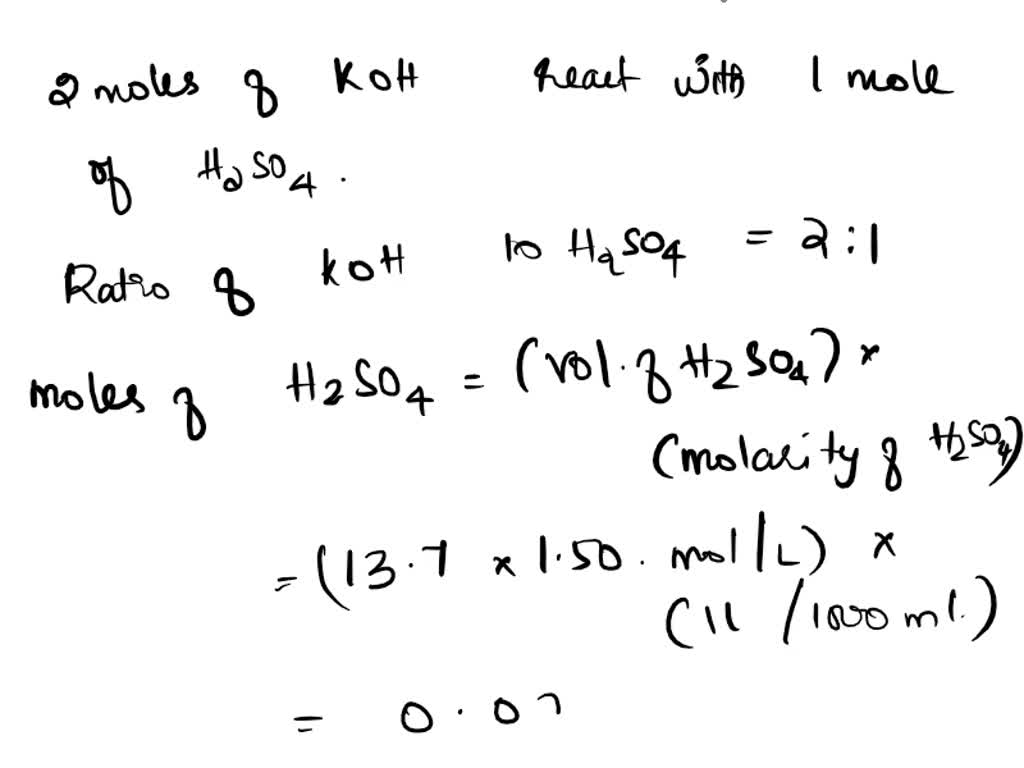 2 moles of KOH react with 1 mole
of H2SO4.
Ratio of KOH to H2SO4 = 2:1
moles of H2SO4 = (vol. of H2SO4) ×
(molarity of H2SO4)
= (13.7 × 1.50. mol/L) ×
(1L /1000 ml.)
= 0.0